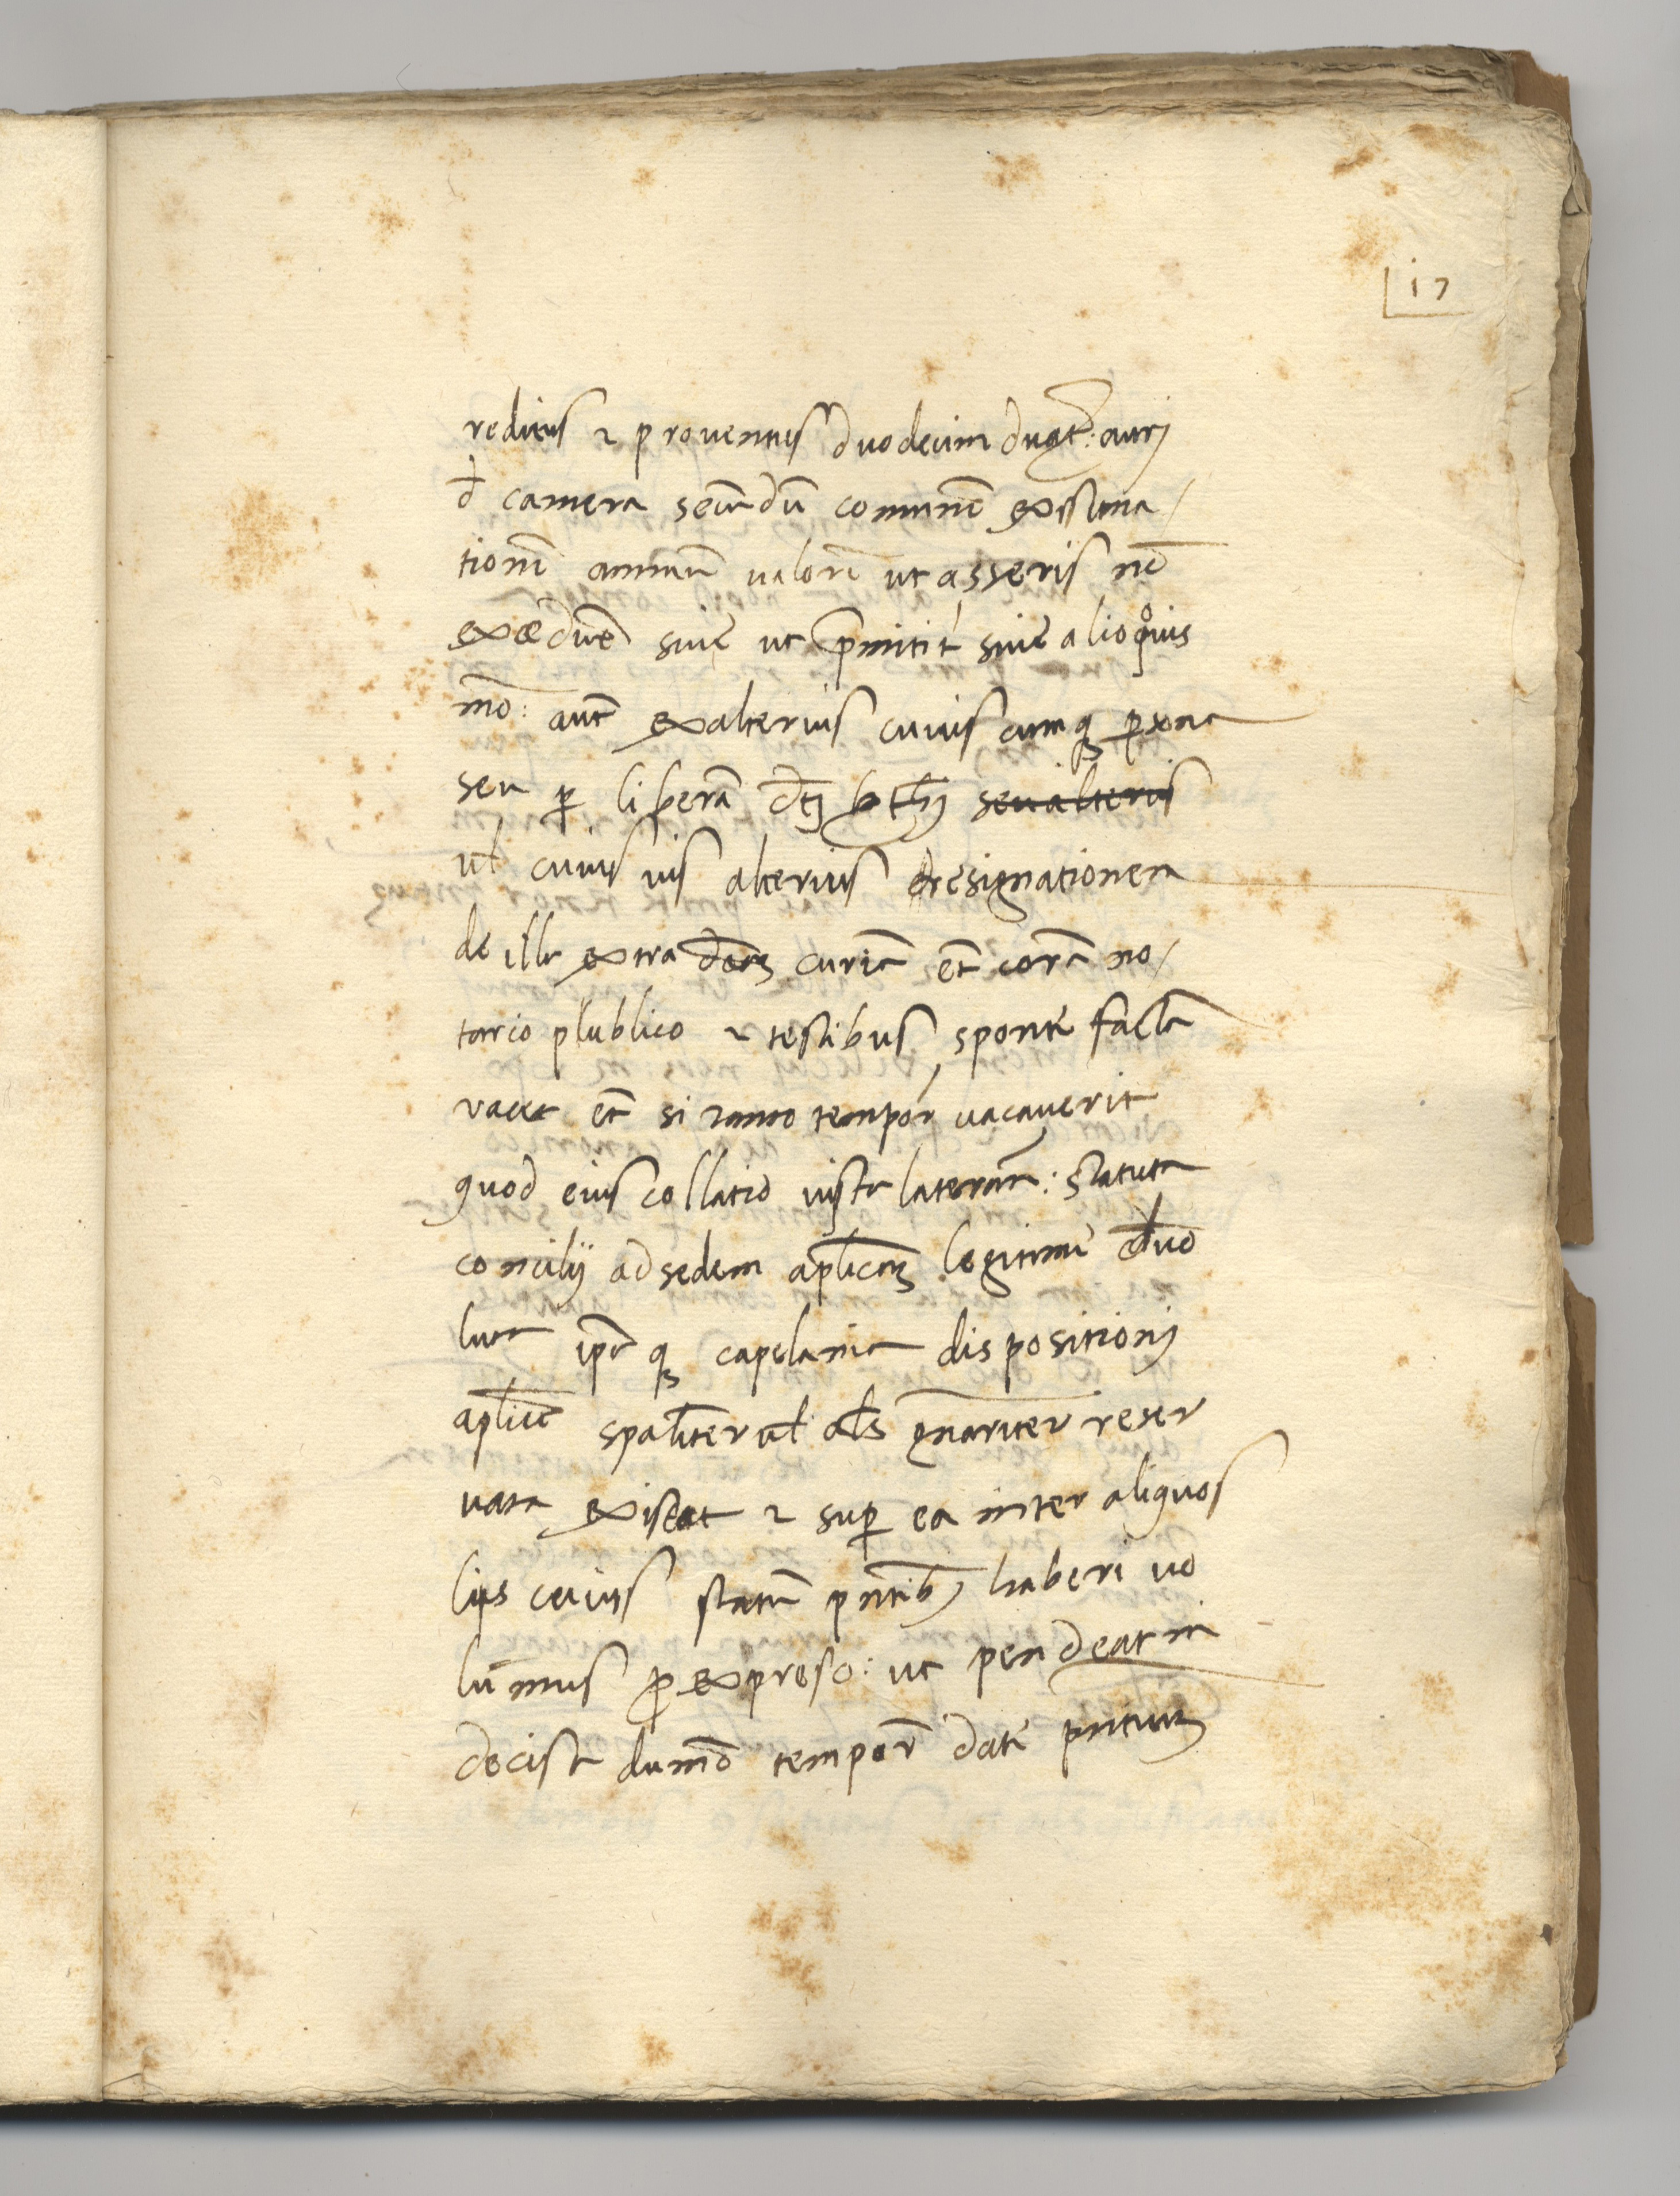 17
reditus ⁊ proventus duodecim ducat: auri
đ camera secūdū comunē existima/
tionē annuū valorē ut asseris nō
excedūt sive ut p̄mitit sive alioqͦvis
mō: aut ex alterius cuius cumqꝫ p̱sona
seu p̱ liberā dtj seu alterius
ul cuius vis alterius resignationem
de illa extra curiā et corā no/
tario plublico ⁊ testibus sponte facta
vacet et si tanto tempor̄ vacaverit
quod eius collatio iusta laterān: statuta
concilij ad sedem aplicaꝫ legitime devo
luta ip̄a qꝫ capelania dispositionj
aplice sp̄aliter ul als gn̄ariter reser
vata existat ⁊ sup̱ ea inter aliquos
lis cuius statū pn̄tibꝫ haberi vo
lūmus ꝓ expreso: ut pendeat in
decisa dumō tempor̄ date pn̄tiuꝫ